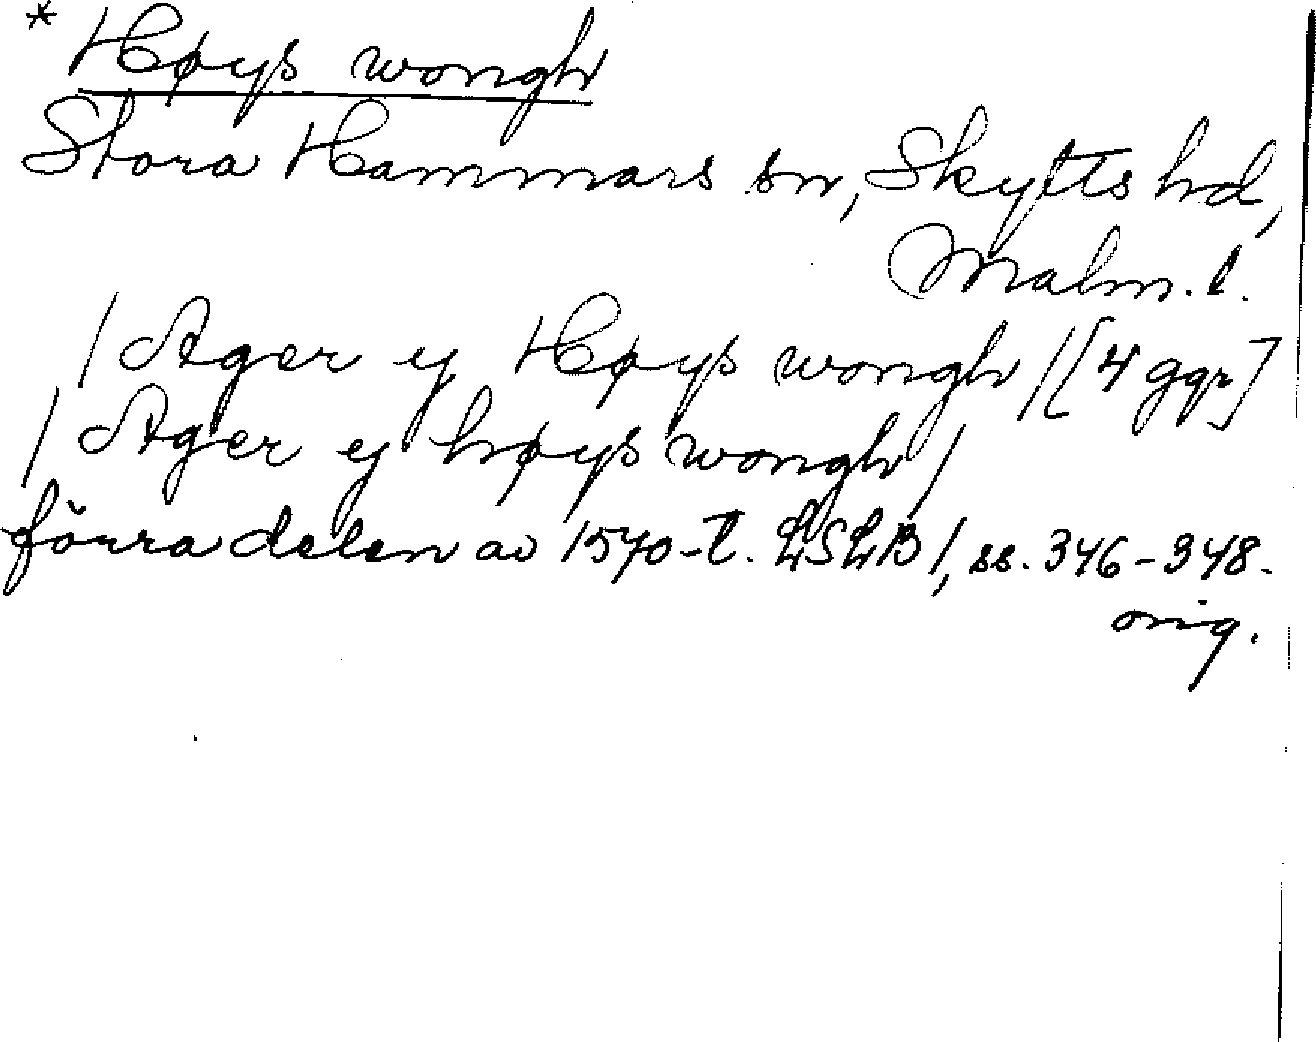 * Høys wongh
Stora Hammars sn, Skytts hd,
Malm. l.
/ Ager ey Høys wongh / [4 ggr]
/ Ager ey høys wongh /
förra delen av 1570-t. LSLB 1, ss. 346-348.
orig.